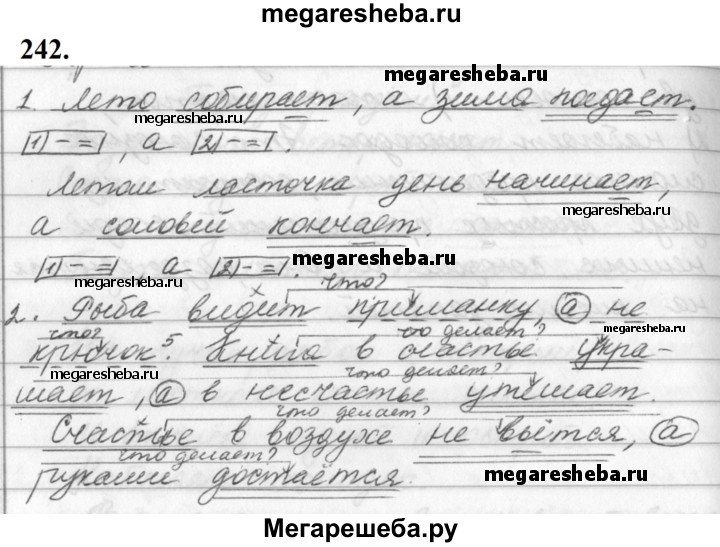 megaresheba.ru
242.
megaresheba.ru
1. Лето собирает, а зима поедает.
megaresheba.ru
|1) – =|, а |2) – =|.
Летом ласточка день начинает,
megaresheba.ru
а соловей кончает.
|1) – =|, а |2) – =|.
megaresheba.ru
что?
2. Рыба видит приманку, а не
что? что делает?
крючок⁵. Книга в счастье укра-
megaresheba.ru что делает?
шает, а в несчастье утешает.
что делает?
Счастье в воздухе не вьётся, а
что делает?
руками достаётся.
megaresheba.ru
Мегарешеба.ру